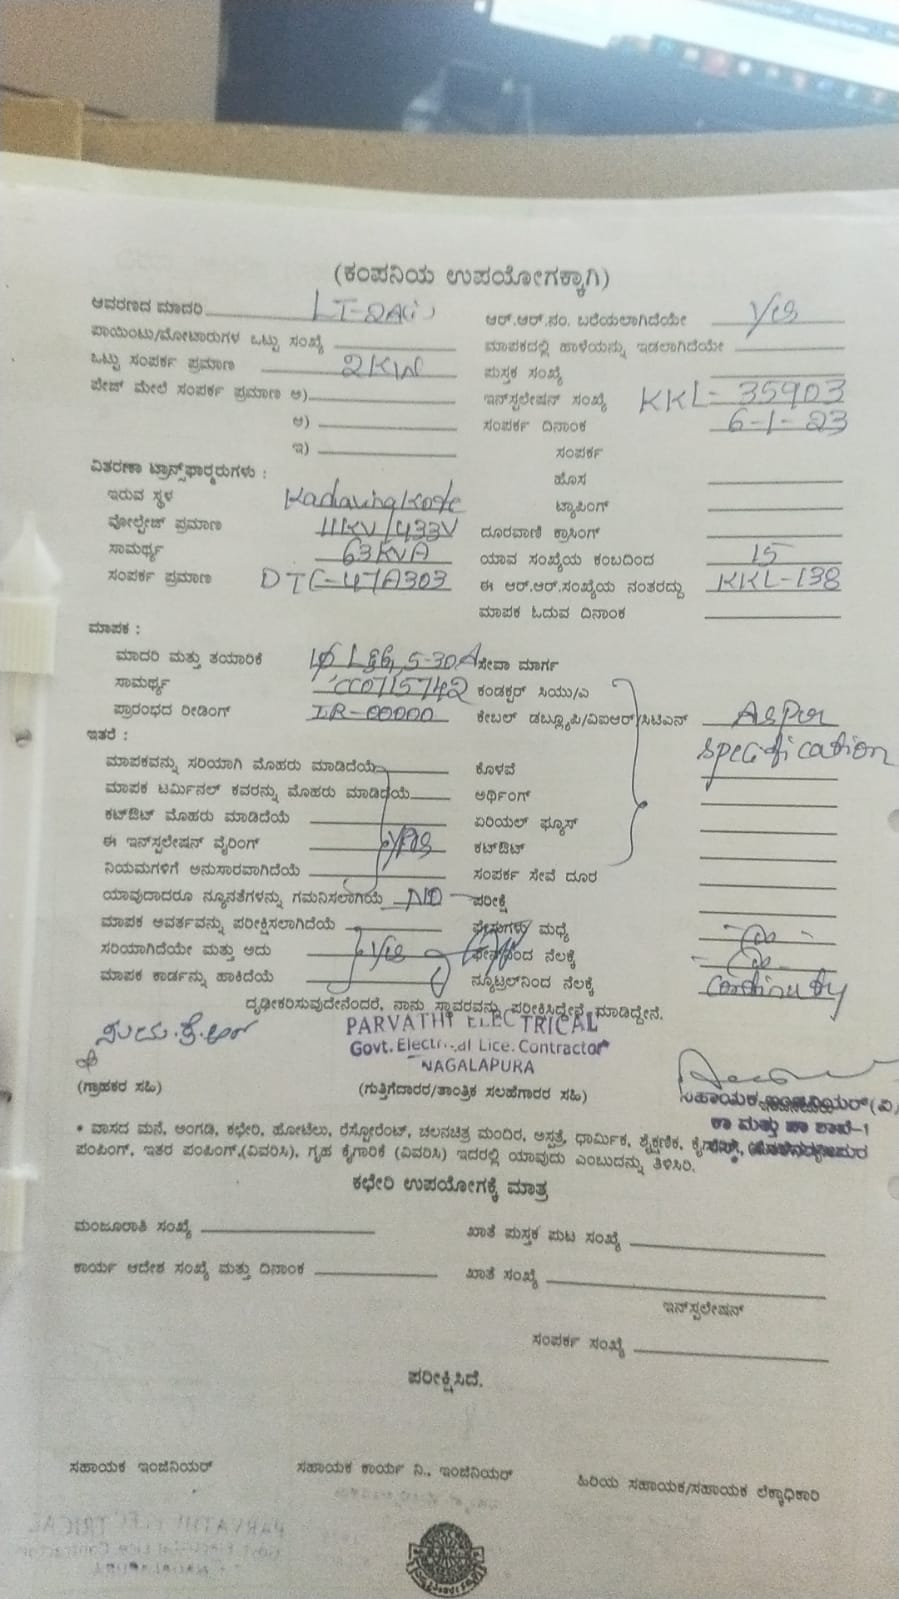 (ಕಂಪನಿಯ ಉಪಯೋಗಕ್ಕಾಗಿ)
ಆವರಣದ ಮಾದರಿ LT-2A(i) ಆರ್.ಆರ್.ನಂ. ಬರೆಯಲಾಗಿದೆಯೇ Yes
ಪಾಯಿಂಟು/ಮೋಟಾರುಗಳ ಒಟ್ಟು ಸಂಖ್ಯೆ ಮಾಪಕದಲ್ಲಿ ಹಾಳೆಯನ್ನು ಇಡಲಾಗಿದೆಯೇ
ಒಟ್ಟು ಸಂಪರ್ಕ ಪ್ರಮಾಣ 2KW ಪುಸ್ತಕ ಸಂಖ್ಯೆ
ಪೇಜ್ ಮೇಲೆ ಸಂಪರ್ಕ ಪ್ರಮಾಣ ಅ) ಇನ್‌ಸ್ಟಲೇಷನ್ ಸಂಖ್ಯೆ KKL-35903
ಆ) ಸಂಪರ್ಕ ದಿನಾಂಕ 6-1-23
ಇ) ಸಂಪರ್ಕ
ವಿತರಣಾ ಟ್ರಾನ್ಸ್‌ಫಾರ್‍ಮರುಗಳು : ಹೊಸ
ಇರುವ ಸ್ಥಳ ಟ್ಯಾಪಿಂಗ್
ವೋಲ್ಟೇಜ್ ಪ್ರಮಾಣ 11KV/433V ದೂರವಾಣಿ ಕ್ರಾಸಿಂಗ್
ಸಾಮರ್ಥ್ಯ 63KVA ಯಾವ ಸಂಖ್ಯೆಯ ಕಂಬದಿಂದ 15
ಸಂಪರ್ಕ ಪ್ರಮಾಣ DTC-47A303 ಈ ಆರ್.ಆರ್.ಸಂಖ್ಯೆಯ ನಂತರದ್ದು KKL-138
ಮಾಪಕ ಓದುವ ದಿನಾಂಕ
ಮಾಪಕ :
ಮಾದರಿ ಮತ್ತು ತಯಾರಿಕೆ 1Φ L&G, 5-30A ಸೇವಾ ಮಾರ್ಗ
ಸಾಮರ್ಥ್ಯ CC0715742 ಕಂಡಕ್ಟರ್ ಸಿಯು/ಎ
ಪ್ರಾರಂಭದ ರೀಡಿಂಗ್ IR-00000 ಕೇಬಲ್ ಡಬ್ಲ್ಯೂಪಿ/ವಿಐಆರ್/ಸಿಟಿಎನ್ As per
ಇತರೆ : specification
ಮಾಪಕವನ್ನು ಸರಿಯಾಗಿ ಮೊಹರು ಮಾಡಿದೆಯೆ ಕೊಳವೆ
ಮಾಪಕ ಟರ್ಮಿನಲ್ ಕವರನ್ನು ಮೊಹರು ಮಾಡಿದೆಯೆ ಅರ್ಥಿಂಗ್
ಕಟ್‌ಔಟ್ ಮೊಹರು ಮಾಡಿದೆಯೆ ಏರಿಯಲ್ ಫ್ಯೂಸ್
ಈ ಇನ್‌ಸ್ಟಲೇಷನ್ ವೈರಿಂಗ್ Yes ಕಟ್‌ಔಟ್
ನಿಯಮಗಳಿಗೆ ಅನುಸಾರವಾಗಿದೆಯೆ ಸಂಪರ್ಕ ಸೇವೆ ದೂರ
ಯಾವುದಾದರೂ ನ್ಯೂನತೆಗಳನ್ನು ಗಮನಿಸಲಾಗಿಯೆ NO ಪರೀಕ್ಷೆ
ಮಾಪಕ ಅವರ್ತವನ್ನು ಪರೀಕ್ಷಿಸಲಾಗಿದೆಯೆ ಫೇಸುಗಳು ಮಧ್ಯೆ
ಸರಿಯಾಗಿದೆಯೇ ಮತ್ತು ಅದು Yes ಫೇಸ್‌ನಿಂದ ನೆಲಕ್ಕೆ
ಮಾಪಕ ಕಾರ್ಡನ್ನು ಹಾಕಿದೆಯೆ ನ್ಯೂಟ್ರಲ್‌ನಿಂದ ನೆಲಕ್ಕೆ continuty
ದೃಢೀಕರಿಸುವುದೇನೆಂದರೆ, ನಾನು ಸ್ಥಾವರವನ್ನು ಪರೀಕ್ಷಿಸಿದ್ದೇನೆ ಮಾಡಿದ್ದೇನೆ.
PARVATHI ELECTRICAL
Govt. Electrical Lice. Contractor
NAGALAPURA
(ಗ್ರಾಹಕರ ಸಹಿ) (ಗುತ್ತಿಗೆದಾರರ/ತಾಂತ್ರಿಕ ಸಲಹೆಗಾರರ ಸಹಿ) ಸಹಾಯಕ ಇಂಜಿನಿಯರ್(ವಿ)
ಕಾ ಮತ್ತು ಪಾ ಶಾಖೆ-1
• ವಾಸದ ಮನೆ, ಅಂಗಡಿ, ಕಛೇರಿ, ಹೋಟೆಲು, ರೆಸ್ಟೋರೆಂಟ್, ಚಲನಚಿತ್ರ ಮಂದಿರ, ಅಸ್ಪತ್ರೆ, ಧಾರ್ಮಿಕ, ಶೈಕ್ಷಣಿಕ,
ಪಂಪಿಂಗ್, ಇತರ ಪಂಪಿಂಗ್,(ವಿವರಿಸಿ), ಗೃಹ ಕೈಗಾರಿಕೆ (ವಿವರಿಸಿ) ಇದರಲ್ಲಿ ಯಾವುದು ಎಂಬುದನ್ನು ತಿಳಿಸಿರಿ.
ಕಛೇರಿ ಉಪಯೋಗಕ್ಕೆ ಮಾತ್ರ
ಮಂಜೂರಾತಿ ಸಂಖ್ಯೆ ಖಾತೆ ಪುಸ್ತಕ ಪುಟ ಸಂಖ್ಯೆ
ಕಾರ್ಯ ಆದೇಶ ಸಂಖ್ಯೆ ಮತ್ತು ದಿನಾಂಕ ಖಾತೆ ಸಂಖ್ಯೆ
ಇನ್‌ಸ್ಟಲೇಷನ್
ಸಂಪರ್ಕ ಸಂಖ್ಯೆ
ಪರೀಕ್ಷಿಸಿದೆ.
ಸಹಾಯಕ ಇಂಜಿನಿಯರ್ ಸಹಾಯಕ ಕಾರ್ಯ ನಿ., ಇಂಜಿನಿಯರ್ ಹಿರಿಯ ಸಹಾಯಕ/ಸಹಾಯಕ ಲೆಕ್ಕಾಧಿಕಾರಿ